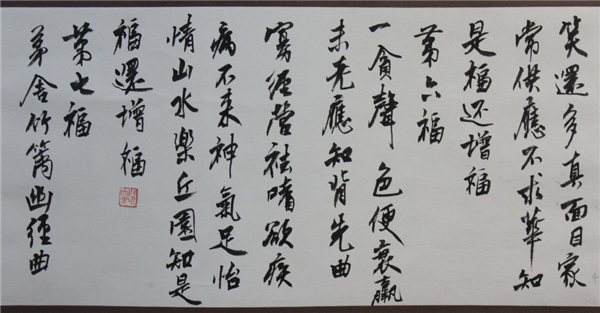 笑还多真面目家
常供應不求華知
是福还增福
第六福
一貪聲色便衰羸
未老應知背先曲
寡經營祛嗜欲疾
病不来神氣足怡
情山水樂丘園知是
福還增福
第七福
茅舍竹篱幽徑曲